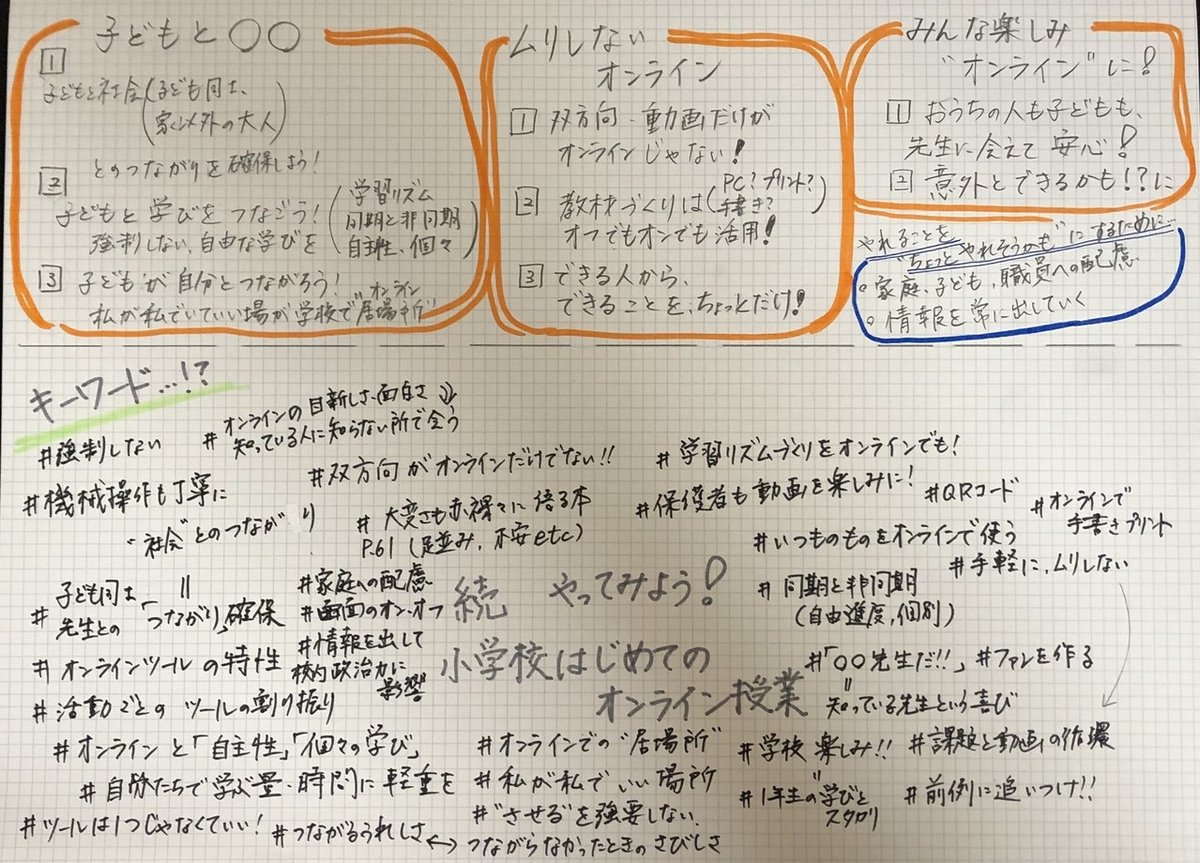 子どもと〇〇
1
子どもと社会(子ども同士、
家族以外の大人)
とのつながりを確保しよう!
2
子どもと学びをつなごう!
強制しない、自由な学びを
(学習リズム
同期と非同期
自主性、個々)
3 子どもが自分とつながろう!
私が私でいていい場が学校で"居場所"
オンライン
ムリしない
オンライン
1 双方向・動画だけが
オンラインじゃない!
2 教材づくりは(PC?プリント?
手書き?)
オフでもオンでも活用!
3 できる人から、
できることを、ちょっとだけ!
みんな楽しみ
"オンライン"に!
1 おうちの人も子どもも、
先生に会えて安心!
2 意外とできるかも!?に
やれることを
"ちょっとやれそうかも"にするために…
○家庭、子ども、職員への配慮
○情報を常に出していく
キーワード…!?
#強制しない
#オンラインの目新しさ・面白さ
知っている人に知らない所で会う
#機械操作も丁寧に
#双方向がオンラインだけでない!!
#学習リズムづくりをオンラインでも!
#保護者も動画を楽しみに!
#QRコード
#オンラインで
手書きプリント
"社会"とのつながり
#大変さも赤裸々に語る本
P.61(足並み、不安etc)
#いつものものをオンラインで使う
#手軽に、ムリしない
#子ども同士
先生との「つながり」確保
#家庭への配慮
#画面のオン・オフ
#情報を出して
校内政治力に
影響
続 やってみよう!
小学校はじめての
オンライン授業
#同期と非同期
(自由進度、個別)
#オンラインツールの特性
#活動ごとのツールの割り振り
#「〇〇先生だ!!」
#ファンを作る
知っている先生という喜び
#オンラインと「自主性」「個々の学び」
#オンラインでの"居場所"
#学校楽しみ!!
#課題と動画の循環
#自分たちで学ぶ量・時間に軽重を
#私が私でいい場所
#1年生の学びと
スタカリ
#前例に追いつけ!!
#ツールは1つじゃなくていい!
#"させる"を強要しない
#つながるうれしさ↔つながらなかったときのさびしさ